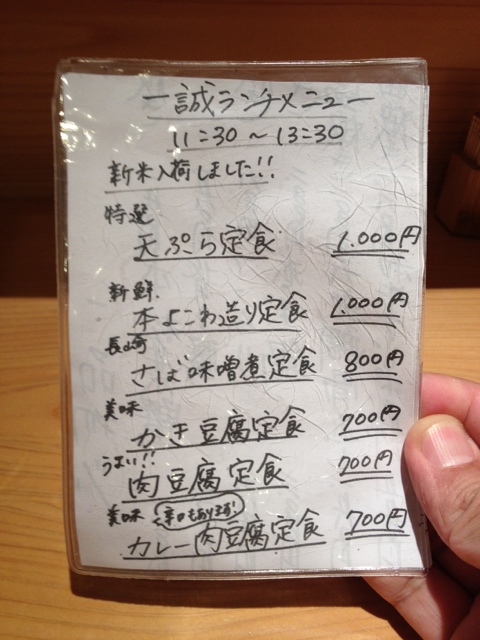 一誠ランチメニュー
11:30～13:30
新米入荷しました!!
特選
天ぷら定食 1.000円
新鮮.
本よこわ造り定食 1.000円
長崎
さば味噌煮定食 800円
美味
かき豆腐定食 700円
うまい!!
肉豆腐定食 700円
美味 辛口もあります!
カレー肉豆腐定食 700円